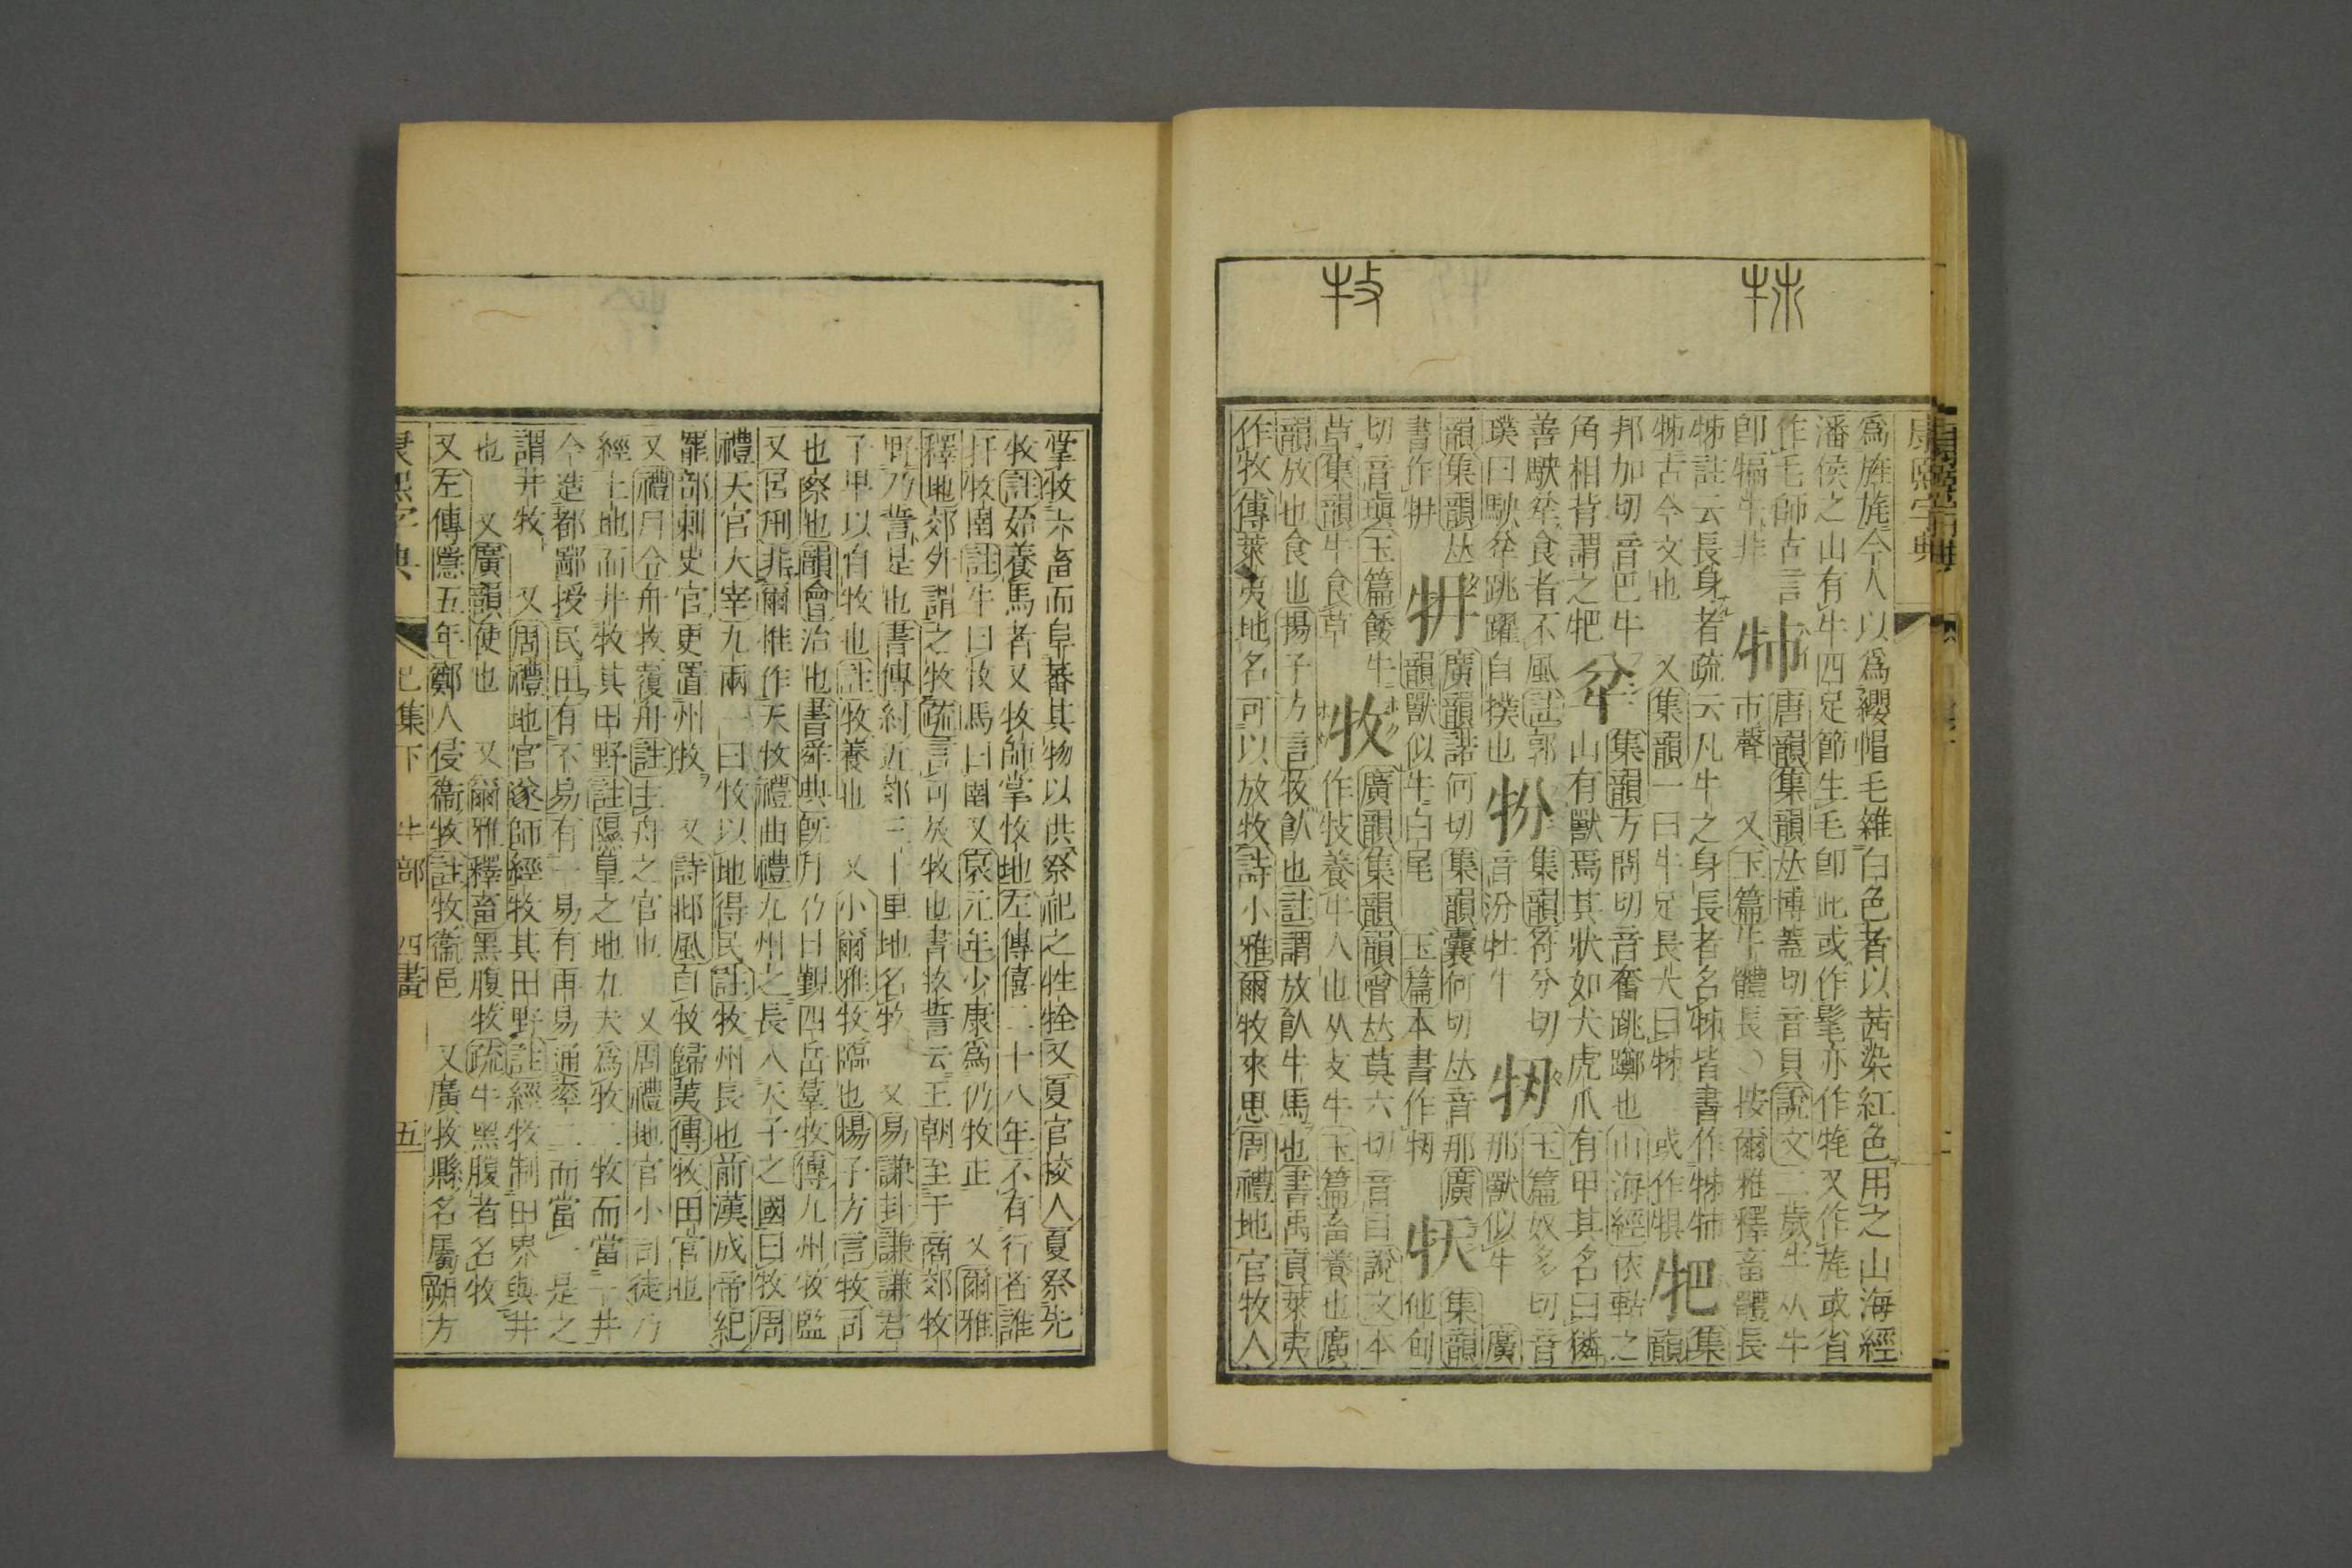 康熙字典
爲旌旄今人以爲纓帽毛雜白色者以茜染紅色用之山海經
潘侯之山有牛四足節生毛卽此或作髦亦作牦又作旄或省
作毛師古言
卽犏牛非
㸬
唐韻集韻𠀤博蓋切音貝說文二歲牛从牛
市聲 又玉篇牛體長○按爾雅釋畜體長
牬註云長身者疏云凡牛之身長者名牬皆書作牬㸬
牬古今文也 又集韻一曰牛足長犬曰牬 或作犋
㸭
集
韻
邦加切音巴牛
角相背謂之㸭
㸮
集韻方問切音奮跳躑也山海經依軲之
山有獸焉其狀如犬虎爪有甲其名曰獜
善駚㸮食者不風註郭
璞曰駚㸮跳躍自撲也
集韻符分切
音汾牡牛
玉篇奴多切音
那獸似牛 廣
韻集韻𠀤
書作
廣韻諾何切集韻囊何切𠀤音那廣
韻獸似牛白尾 玉篇本書作
集韻
他甸
切音瑱玉篇餧牛
草集韻牛食草
牧
廣韻集韻韻會𠀤莫六切音目說文本
作牧養牛人也从攴牛玉篇畜養也廣
韻放也食也揚子方言牧飤也註謂放飤牛馬也書禹貢萊夷
作牧傳萊夷地名可以放牧詩小雅爾牧來思周禮地官牧人
掌牧六畜而阜蕃其物以供祭祀之牲牷又夏官挍人夏祭先
牧註始養馬者又牧師掌牧地左傳僖二十八年不有行者誰
扞牧圉註牛曰牧馬曰圉又哀元年少康爲仍牧正 又爾雅
釋地郊外謂之牧疏言可放牧也書牧誓云王朝至于商郊牧
野乃誓是也書傳紂近郊三十里地名牧 又易謙卦謙謙君
子𤰞以自牧也註牧養也 又小爾雅牧臨也揚子方言牧司
也察也韻會治也書舜典旣月乃日覲四岳羣牧傳九州牧監
又呂刑非爾惟作天牧禮曲禮九州之長入天子之國曰牧周
禮天官大宰九兩一曰牧以地得民註牧州長也前漢成帝紀
罷部刺史官更置州牧 又詩邶風自牧歸荑傳牧田官也
又禮月令舟牧覆舟註主舟之官也 又周禮地官小司徒乃
經土地而井牧其田野註隰皐之地九夫爲牧二牧而當一井
今造都鄙授民田有不易有一易有再易通率二而當一是之
謂井牧 又周禮地官遂師經牧其田野註經牧制田界與井
也 又廣韻使也 又爾雅釋畜黑腹牧疏牛黑腹者名牧
又左傳隱五年鄭人侵衞牧註牧衞邑 又廣牧縣名屬朔方
康熙字典 巳集下 牛部 四畫 五